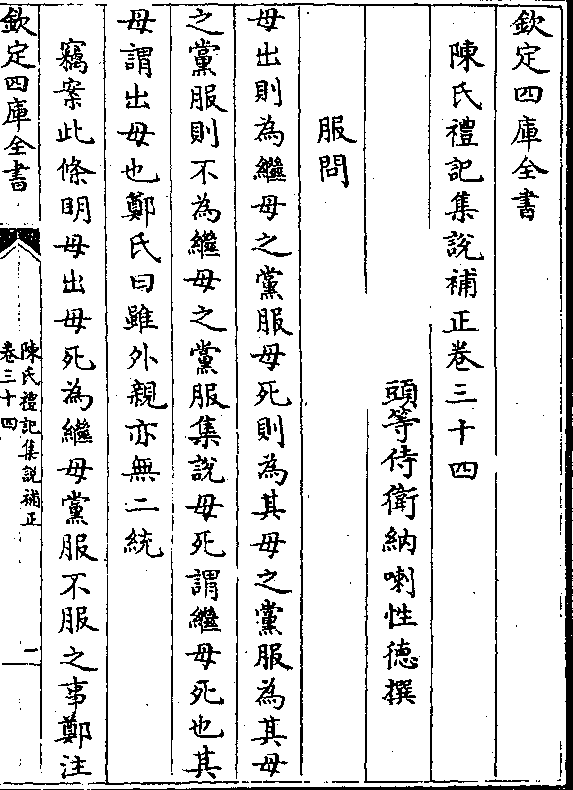 欽定四庫全書
陳氏禮記集說補正卷三十四
頭等侍衛納喇性德撰
服問
母出則為繼母之黨服母死則為其母之黨服為其母
之黨服則不為繼母之黨服集說母死謂繼母死也其
母謂出母也鄭氏曰雖外親亦無二統
竊案此條明母出母死為繼母黨服不服之事鄭注
欽定四庫全書
陳氏禮記集說補正
卷三十四
一